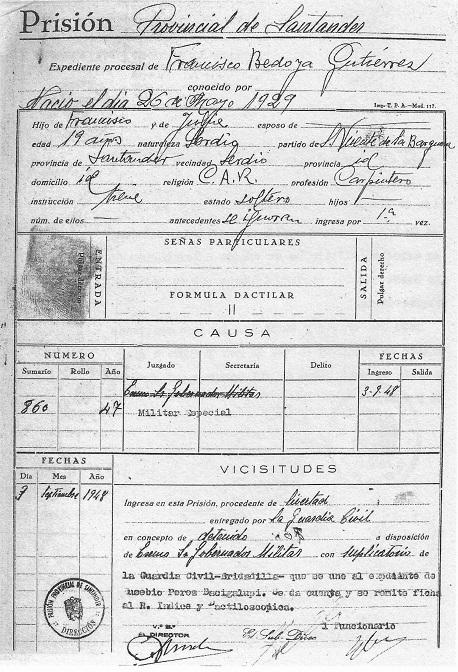 Prisión Provincial de Santander
Expediente procesal de Francisco Bedoya Gutiérrez
conocido por
Nacio el dia 26 de Mayo 1929
Imp. T. P. A.—Mod. 117.
Hijo de Francisco y de Julia esposo de
edad 19 años naturaleza Serdio partido de S. Vicente de la Barquera
provincia de Santander vecindad Serdio provincia id
domicilio id religión C.A.R. profesión Carpintero
instrucción tiene estado soltero hijos —
núm. de ellos — antecedentes se ignoran ingresa por 1.ª vez.
SEÑAS PARTICULARES
ENTRADA
Pulgar derecho
SALIDA
Pulgar derecho
FORMULA DACTILAR
II
CAUSA
NUMERO
FECHAS
Sumario Rollo Año Juzgado Secretaría Delito Ingreso Salida
Excmo Sr Gobernador Militar 3-9-48
860 47 Militar Especial
FECHAS
VICISITUDES
Día Mes Año
3 Septiembre 1948
Ingresa en esta Prisión, procedente de libertad
entregado por la Guardia Civil
en concepto de detenido a disposición
de Excmo Sr Gobernador Militar con suplicatorio de
la Guardia Civil que se une al expediente de
Eusebio Peros Bacigalupi. Se da cuenta y se remite ficha
al R. Indice y Dactiloscopica.
PRISIÓN PROVINCIAL DE SANTANDER
DIRECCIÓN
V.º B.º
EL DIRECTOR
El Sub-Direc
El Funcionario